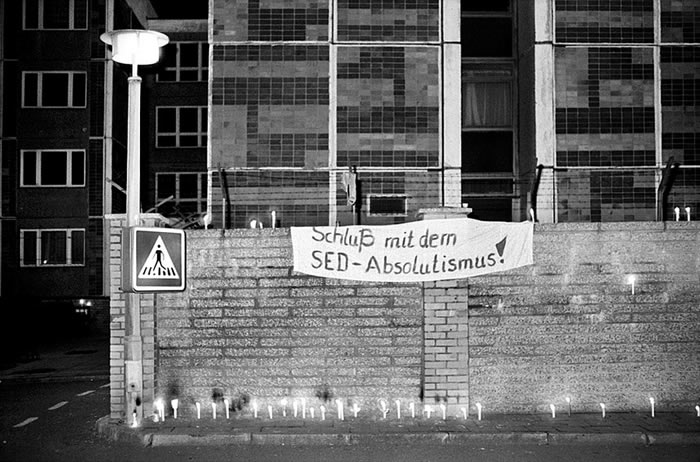 Schluß mit dem
SED-Absolutismus!